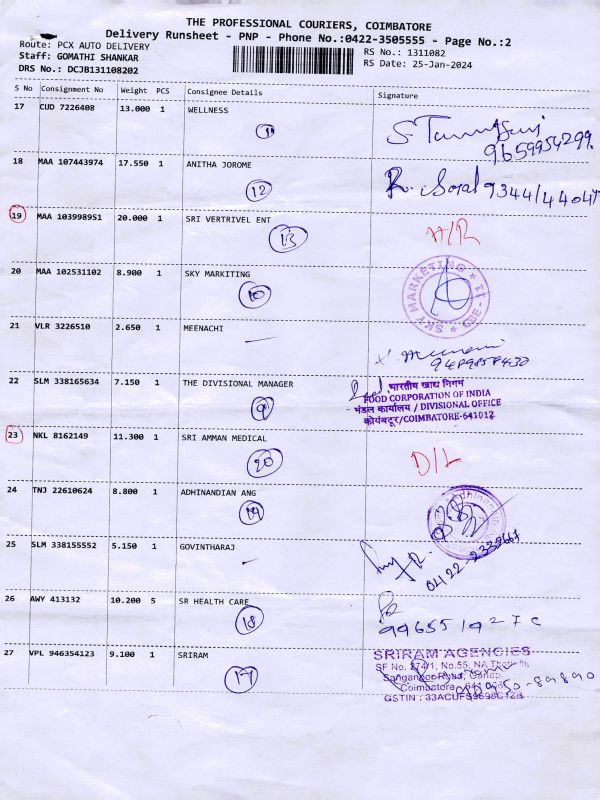 THE PROFESSIONAL COURIERS, COIMBATORE
Delivery Runsheet - PNP - Phone No.:0422-3505555 - Page No.:2
Route: PCX AUTO DELIVERY
RS No.: 1311082
Staff: GOMATHI SHANKAR
RS Date: 25-Jan-2024
DRS No.: DCJB131108202
S No Consignment No Weight PCS Consignee Details Signature
17 CUD 7226408 13.000 1 WELLNESS
9659954299
18 MAA 107443974 17.550 1 ANITHA JOROME
12
19 MAA 103998951 20.000 1 SRI VERTRIVEL ENT
13
20 MAA 102531102 8.900 1 SKY MARKITING
10
SKY MARKETING
21 VLR 3226510 2.650 1 MEENACHI
22 SLM 338165634 7.150 1 THE DIVISIONAL MANAGER
9
भारतीय खाद्य निगम
FOOD CORPORATION OF INDIA
मंडल कार्यालय / DIVISIONAL OFFICE
कोयंबटूर/COIMBATORE-641012
23 NKL 8162149 11.300 1 SRI AMMAN MEDICAL
20
D/L
24 TNJ 22610624 8.800 1 ADHINANDIAN ANG
19
25 SLM 338155552 5.150 1 GOVINTHARAJ
26 AWY 413132 10.200 5 SR HEALTH CARE
18
27 VPL 946354123 9.100 1 SRIRAM
17
SRIRAM AGENCIES
SF No. 274/1, No.55,
Road,
Coimbatore
GSTIN :